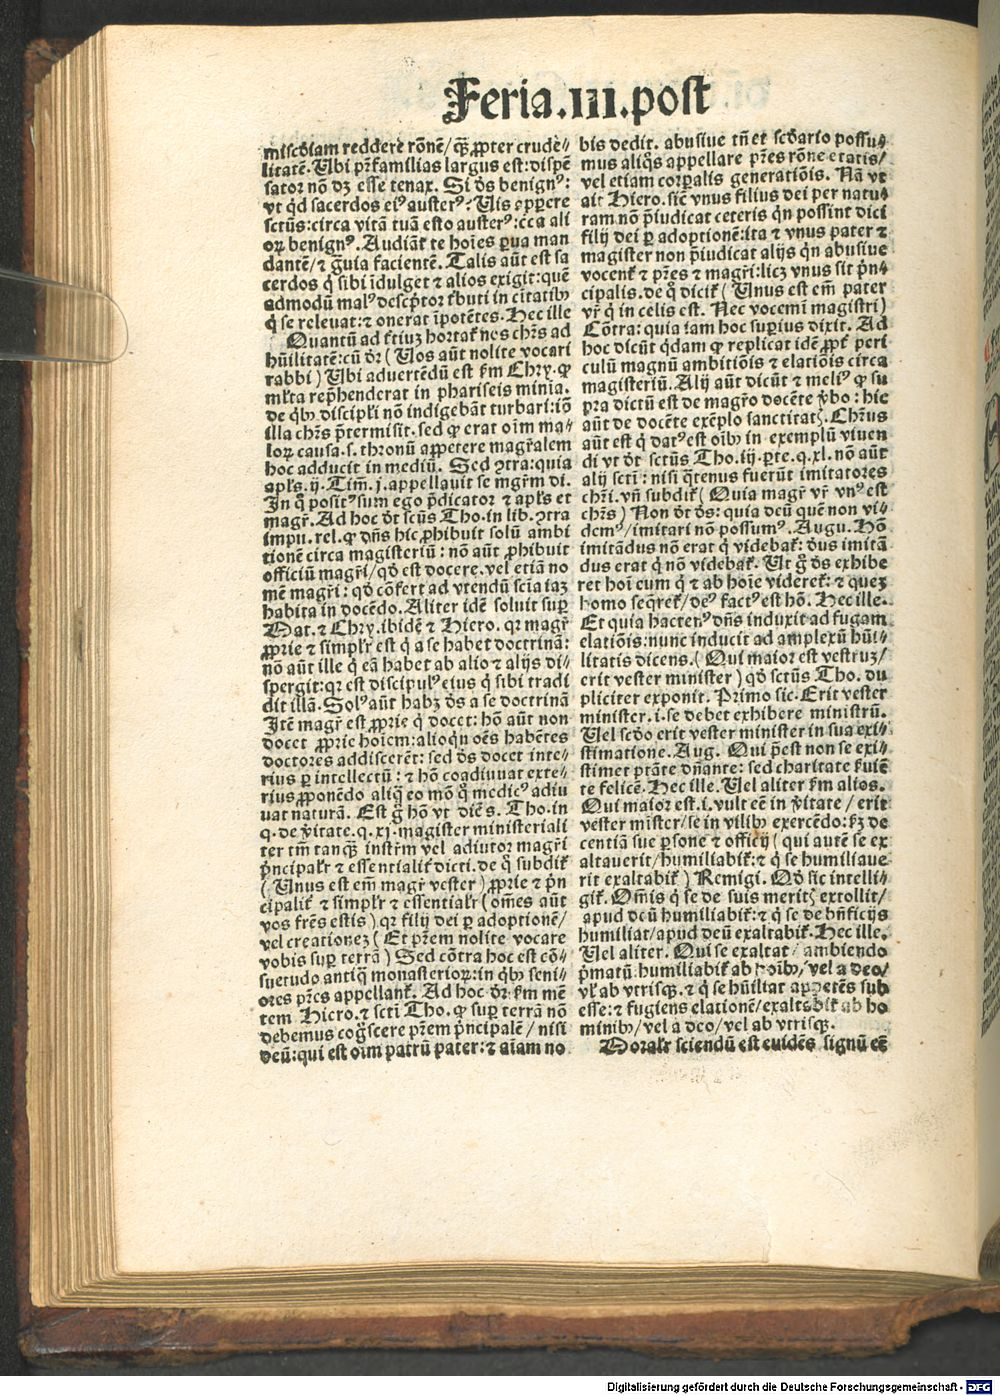 Feria.III.post
miscḋiam reddere rōnē/ q̄ꝫ ꝓpter crude⸗
litatē. Ubi pr̄familias largus est: dispē
sator nō dꝫ esse tenax. Si ds̄ benignꝰ:
vt qd sacerdos eiꝰ austerꝰ? Uis apparere
sctūs: circa vitā tuā esto austerꝰ: c̄ca ali
oꝝ benignꝰ. Audiāt te hoīes parua man
dantē/ ⁊ grauia facientē. Talis aūt est sa
cerdos q̇ sibi īdulget ⁊ alios exigit: quē
admodū malꝰ descptor tributi in ciuitatibꝰ
q̇ se releuat: ⁊ onerat īpotētes. Hec ille
Quantū ad tertiuꝫ hortat nos chr̄s ad
hūilitatē: cū dr̄ (Uos aūt nolite vocari
rabbi) Ubi aduertēdū est ẜm Chry. ꝙ
ml̄ta rep̄henderat in phariseis minīa.
de qbꝰ discipuli nō indigebāt turbari: iō
illa chr̄s p̄termisit. sed ꝙ erat oīm ma⸗
loꝝ causa .s. thronū appetere magr̄alem
hoc adducit in mediū. Sed ꝯtra: quia
apl̄s .ij. Tim̄. j. appellauit se mgr̄m di.
In q̊ positꝰ sum ego p̄dicator ⁊ apl̄s et
magr̄. Ad hoc dt̄ scūs Tho. in lib. ꝯtra
impu. rel. ꝙ dn̄s hic ꝓhibuit solū ambi
tionē circa magisteriū: nō aūt ꝓhibuit
officiū magr̄i/ qd̄ est docere. vel etiā no
mē magr̄i: qd̄ cōfert ad vtendū scīa iaꝫ
habita in docēdo. Aliter idē soluit suꝑ
Mat. ⁊ Chry. ibidē ⁊ Hiero. qꝛ magr̄
ꝓprie ⁊ simplr̄ est q̇ a se habet doctrinā:
nō aūt ille q̇ eā habet ab alio ⁊ alijs di⸗
spergit: qꝛ est discipulꝰ eius q̇ sibi tradi
dit illā. Solꝰ aūt habꝫ ds̄ a se doctrinā
Itē magr̄ est ꝓprie q̇ docet: hō aūt non
docet ꝓprie hoīem: alioqn oēs habētes
doctores addiscerēt: sed ds̄ docet inte⸗
rius ꝑ intellectū: ⁊ hō coadiuuat exte⸗
rius ꝓponēdo aliq̇ eo mō q̊ medicꝰ adiu
uat naturā. Est g̊ hō vt dic̄ s. Tho. in
q. de v̄itate. q. xj. magister ministeriali
ter tm̄ tanqꝫ instrm̄ vel adiutor magr̄i
pncipalr̄ ⁊ essentialit̄ dicti. de q̊ subdit̄
(Unus est em̄ magr̄ vester) ꝓprie ⁊ pn̄
cipalit̄ ⁊ simplr̄ ⁊ essentialr̄ (om̄es aūt
vos fr̄es estis) qꝛ filij dei ꝑ adoptionē/
vel creationeꝫ (Et pr̄em nolite vocare
vobis suꝑ terrā) Sed cōtra hoc est cō⸗
suetudo antiq̄ monasterioꝝ: in qbꝰ seni⸗
ores pr̄es appellant̄. Ad hoc dr̄ ẜm mē
tem Hiero. ⁊ scti Tho. ꝙ suꝑ terrā nō
debemus cogscere pr̄em pncipalē/ nisi
deū: qui est oīm patrū pater: ⁊ aīam no
bis dedit. abusiue tn̄ et scḋario possu⸗
mus aliq̊s appellare pr̄es rōne etatis/
vel etiam corꝑalis generatiōis. Nā vt
ait Hiero. sic̄ vnus filius dei per natu
ram nō p̄iudicat ceteris qn possint dici
filij dei ꝑ adoptionē: ita ⁊ vnus pater ⁊
magister non p̄iudicat alijs qn abusiue
vocent̄ ⁊ pr̄es ⁊ magr̄i: licꝫ vnus sit pn⸗
cipalis. de q̊ dicit̄ (Unus est em̄ pater
vr̄ q̇ in celis est. Nec vocemī magistri)
Cōtra: quia iam hoc suꝑius dixit. Ad
hoc dicūt qdam ꝙ replicat idē ꝓpt̄ peri
culū magnū ambitiōis ⁊ elatiōis circa
magisteriū. Alij aūt dicūt ⁊ meliꝰ ꝙ su
pra dictū est de magr̄o docēte v̄bo: hic
aūt de docēte exēplo sanctitatꝭ. Chr̄us
aūt est q̇ datꝰ est oībꝰ in exemplū viuen
di vt dt̄ sctūs Tho. iij. ꝑte. q. xl. nō aūt
alij scti: nisi q̄tenus fuerūt imitatores
chr̄i. vn̄ subdit̄ (Quia magr̄ vr̄ vnꝰ est
chr̄s) Non dt̄ ds̄: quia deū quē non vi⸗
demꝰ/ imitari nō possumꝰ. Augu. Hō
imitādus nō erat q̇ videbat̄: ds̄us imitā
dus erat q̇ nō videbat̄. Ut g̊ ds̄ exhibe
ret hoī eum q̇ ⁊ ab hoīe videret̄: ⁊ queꝫ
homo seq̄ret̄/ deꝰ factꝰ est hō. Hec ille.
Et quia hactenꝰ dn̄s induxit ad fugam
elatiōis: nunc inducit ad amplexū hūi⸗
litatis dicens. (Qui maior est vestruꝫ/
erit vester minister) qd̄ sctūs Tho. du
pliciter exponit. Primo sic. Erit vester
minister .i. se debet exhibere ministrū.
Uel scḋo erit vester minister in sua exi⸗
stimatione. Aug. Qui p̄est non se exi⸗
stimet ptāte dn̄ante: sed charitate ẜuiē
te felicē. Hec ille. Uel aliter ẜm alios.
Qui maior est .i. vult eē in v̄itate/ erit
vester mīster/ se in vilibꝰ exercēdo: ẜꝫ de
centiā sue ꝑsone ⁊ officij (qui autē se ex
altauerit/ humiliabit̄: ⁊ q̇ se humiliaue
rit exaltabit̄) Remigi. Qd̄ sic intelli⸗
git̄. Om̄is q̇ se de suis meritꝭ extollit/
apud deū humiliabit̄: ⁊ q̇ se de bn̄ficijs
humiliat/ apud deū exaltabit̄. Hec ille.
Uel aliter. Qui se exaltat/ ambiendo
pmatū: humiliabit̄ ab hoībꝰ/ vel a deo/
vl̄ ab vtrisqꝫ. ⁊ q̇ se hūiliat appetēs sub
esse: ⁊ fugiens elationē/ exaltabit̄ ab ho
minibꝰ/ vel a deo/ vel ab vtrisqꝫ.
Moralr̄ sciendū est euidēs signū eē
Digitalisierung gefördert durch die Deutsche Forschungsgemeinschaft - DFG